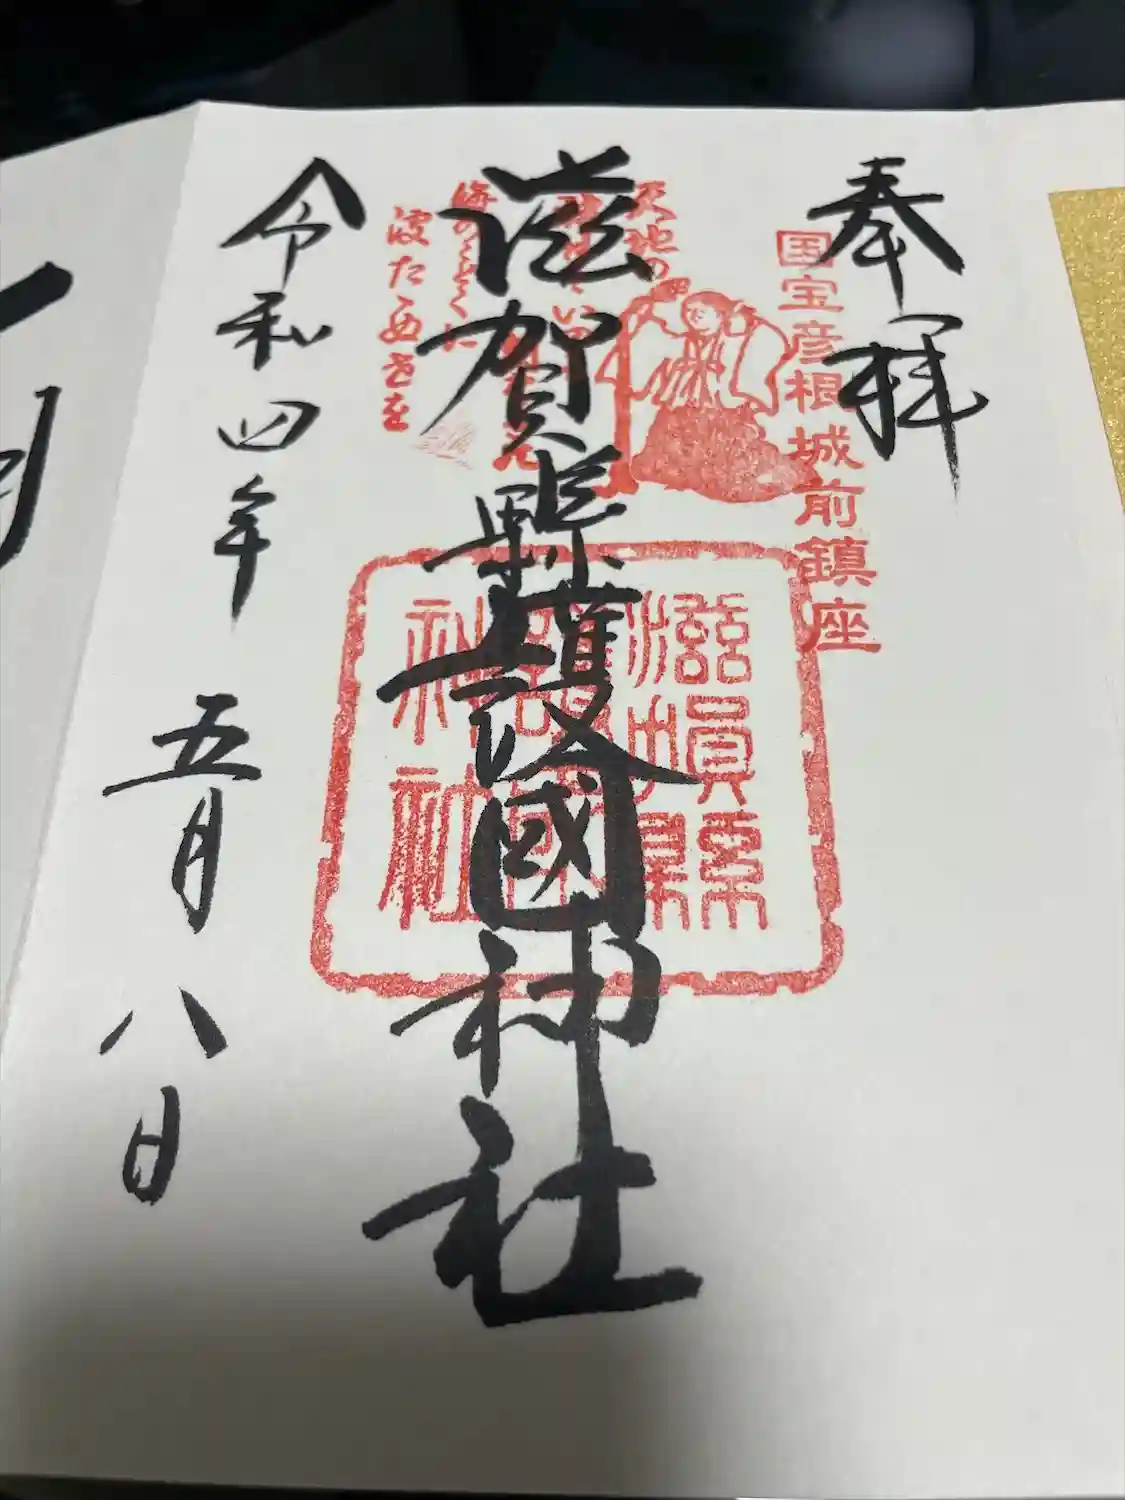 奉拝
国宝彦根城前鎮座
滋賀縣護國神社
天地の
海のことくに
波たゝぬ世を
滋賀縣
護國
神社
令和四年 五月八日
月